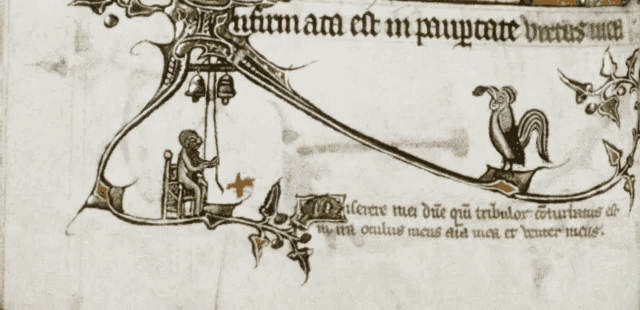 Infirmata est in paup̱tate virtus mea
Miserere mei dn̄e qm̄ tribulor: cōturbatus est
in ira oculus meus aīa mea et venter meus.